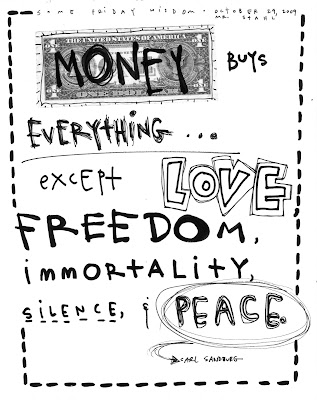 SOME FRIDAY WISDOM · OCTOBER 29, 2009
MR. STAHL
THE UNITED STATES OF AMERICA
MONEY BUYS
EVERYTHING ...
EXCEPT LOVE,
FREEDOM,
immORTALITY,
SiLENCE, & PEACE.
CARL SANDBURG